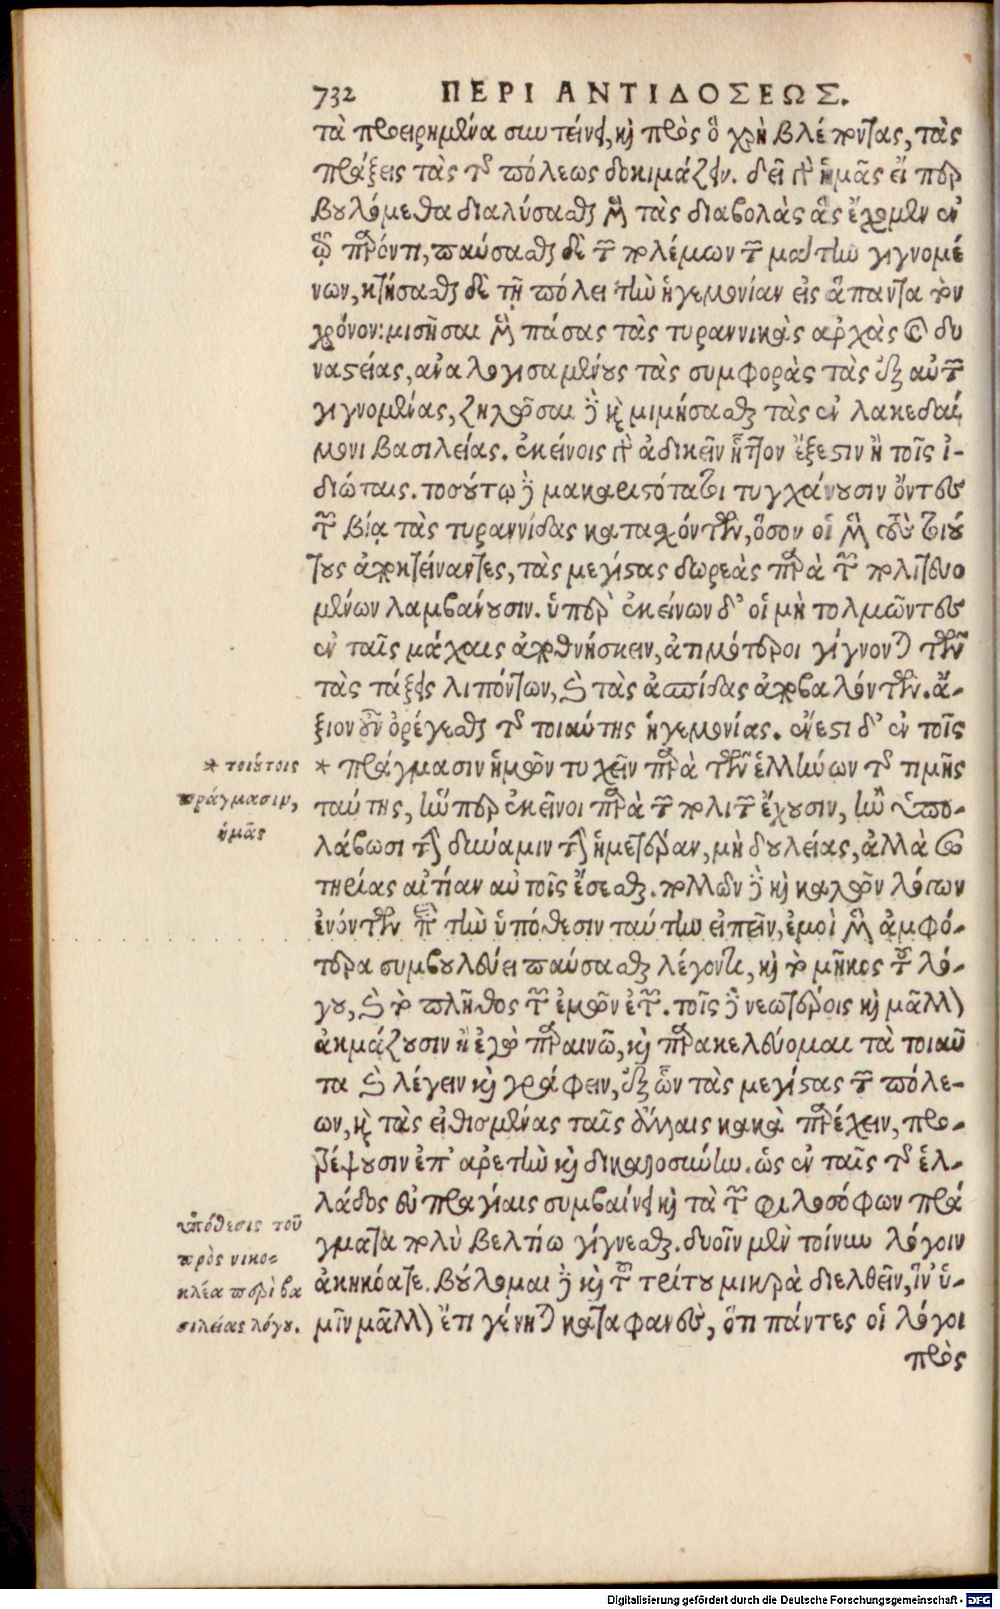 732 ΠΕΡΙ ΑΝΤΙΔΟΣΕΩΣ.
τὰ προειρημένα συντείνει, καὶ πρὸς ὃ χρὴ βλέποντας, τὰς
πράξεις τὰς τῆς πόλεως δοκιμάζειν. δεῖ γὰρ ἡμᾶς εἴ περ
βουλόμεθα διαλύσασθαι μὲν τὰς διαβολὰς ἃς ἔχομεν ἐν
τῷ παρόντι, παύσασθαι δὲ τῶν πολέμων τῶν μάτην γιγνομέ
νων, κτήσασθαι δὲ τῇ πόλει τὴν ἡγεμονίαν εἰς ἅπαντα τὸν
χρόνον: μισῆσαι μὲν πάσας τὰς τυραννικὰς ἀρχὰς καὶ δυ
ναστείας, ἀναλογισαμένους τὰς συμφορὰς τὰς ἐξ αὐτῶν
γιγνομένας, ζηλῶσαι δὲ καὶ μιμήσασθαι τὰς ἐν λακεδαί
μονι βασιλείας. ἐκείνοις γὰρ ἀδικεῖν ἧττον ἔξεστιν ἢ τοῖς ἰ-
διώταις. τοσούτῳ δὲ μακαριστότεροι τυγχάνουσιν ὄντες
τῶν βίᾳ τὰς τυραννίδας κατασχόντων, ὅσον οἱ μὲν τοὺς τοιού
τους ἀποκτείναντες, τὰς μεγίστας δωρεὰς παρὰ τῶν πολιτευο
μένων λαμβάνουσιν. ὑπὲρ ἐκείνων δ' οἱ μὴ τολμῶντες
ἐν ταῖς μάχαις ἀποθνήσκειν, ἀτιμότεροι γίγνονται τῶν
τὰς τάξεις λιπόντων, καὶ τὰς ἀσπίδας ἀποβαλόντων. ἄ-
ξιον οὖν ὀρέγεσθαι τῆς τοιαύτης ἡγεμονίας. ἔνεστι δ' ἐν τοῖς
* πράγμασιν ἡμῶν τυχεῖν παρὰ τῶν ἑλλήνων τῆς τιμῆς
ταύτης, ἥνπερ ἐκεῖνοι παρὰ τῶν πολιτῶν ἔχουσιν, ἢν ὑπο-
λάβωσι τὴν δύναμιν τὴν ἡμετέραν, μὴ δουλείας, ἀλλὰ σω
τηρίας αἰτίαν αὐτοῖς ἔσεσθαι. πολλῶν δὲ καὶ καλῶν λόγων
ἐνόντων περὶ τὴν ὑπόθεσιν ταύτην εἰπεῖν, ἐμοὶ μὲν ἀμφό-
τερα συμβουλεύει παύσασθαι λέγοντι, καὶ τὸ μῆκος τοῦ λό-
γου, καὶ τὸ πλῆθος τῶν ἐμῶν ἐτῶν. τοῖς δὲ νεωτέροις καὶ μᾶλλον
ἀκμάζουσιν ἢ ἐγὼ παραινῶ, καὶ παρακελεύομαι τὰ τοιαῦ
τα καὶ λέγειν καὶ γράφειν, ἐξ ὧν τὰς μεγίστας τῶν πόλε-
ων, καὶ τὰς εἰθισμένας ταῖς ἄλλαις κακὰ παρέχειν, προ-
τρέψουσιν ἐπ' ἀρετὴν καὶ δικαιοσύνην. ὡς ἐν ταῖς τῆς ἑλ-
λάδος εὐπραγίαις συμβαίνει καὶ τὰ τῶν φιλοσόφων πρά
γματα πολὺ βελτίω γίγνεσθαι. δυοῖν μὲν τοίνυν λόγοιν
ἀκηκόατε. βούλομαι δὲ καὶ τοῦ τρίτου μικρὰ διελθεῖν, ἵν' ὑ-
μῖν μᾶλλον ἔτι γένηται καταφανὲς, ὅτι πάντες οἱ λόγοι
πρὸς
* τοιούτοις
πράγμασιν,
ὑμᾶς
ὑπόθεσις τοῦ
πρὸς νικο-
κλέα περὶ βα
σιλείας λόγου.
Digitalisierung gefördert durch die Deutsche Forschungsgemeinschaft - DFG